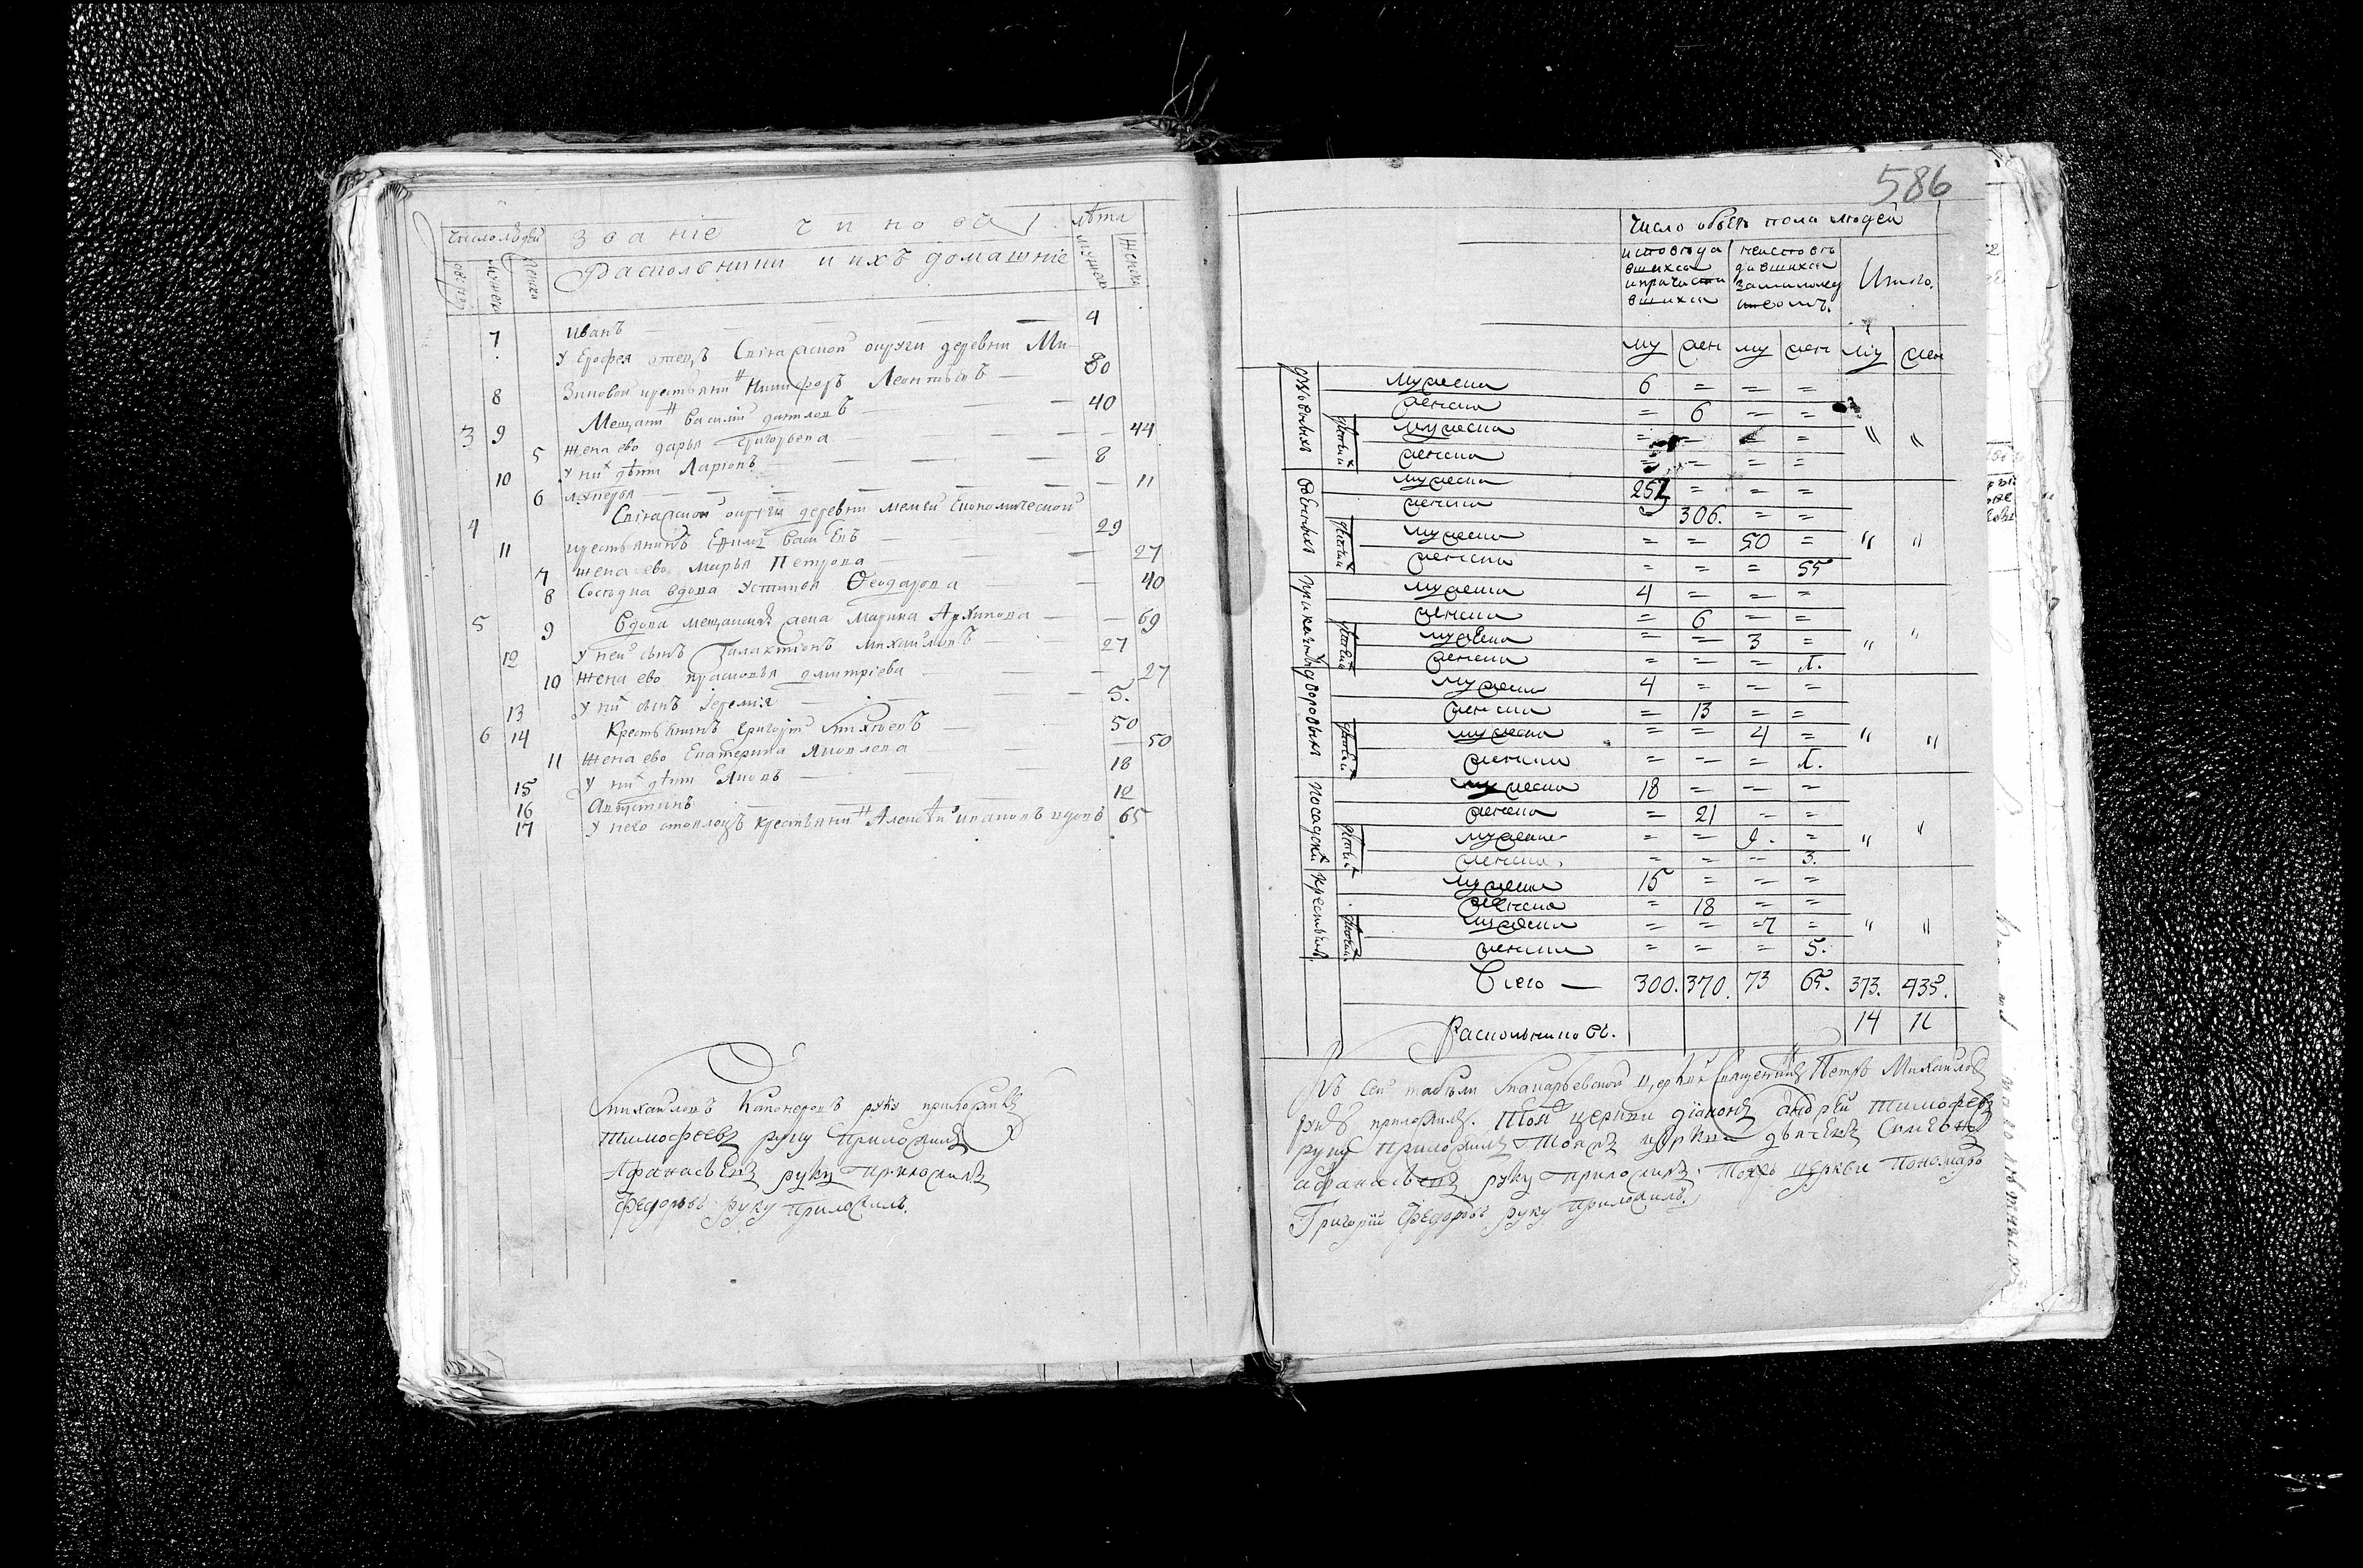 число людей званіе чиновъ лѣта
мужска женска
Раскольники и ихъ домашніе
7 Иванъ 4
У Ерофея отецъ Свіяжской округи деревни Ми-
8 зиновой крестьянинъ Никифоръ Леонтьевъ 80
3 9 Мещанинъ Василій 40
5 жена ево Дарья Григорьева 44
10 У них дѣти Ларіонъ 8
6 Лукерья 11
4 Свіяжской округи деревни Экономической
11 крестьянинъ Васильевъ 29
7 жена ево Марья Петрова 27
8 вдова Устинья Ѳеодорова 40
5 9 Вдова мещанская жена Марина Архипова 69
12 У ней сынъ Галактіонъ Михайловъ 27
10 жена ево Прасковья Дмитріева 27
13 У них сынъ Іеремія 5.
6 14 Крестьянинъ Григорій Михѣевъ 50
11 жена ево Екатерина Яковлева 50
15 У них дѣти Яковъ 18
16 Августинъ 12
17 У него крестьянинъ Алексѣй Ивановъ вдовъ 65
Михайловъ руку приложилъ
Тимофеевъ руку приложилъ
Афанасьевъ руку приложилъ
Федоровъ руку приложилъ.
586
Число обоего пола людей
исповѣда
вшихся
и причасти
вшихся
неисповѣ
давшихся
Итого.
му жен му жен му жен
духовныхъ мужеска 6 = = =
женска = 6 = =
мужеска = = = = " "
женска = = = =
военныхъ мужеска 257 = = =
женска 306. = =
мужеска = = 50 = " "
женска = = = 55
приказныхъ мужеска 4 = = =
женска = 6 = =
мужеска = = 3 = " "
женска = = = 1.
дворовыхъ мужеска 4 = = =
женска = 13 = =
мужеска = = 4 = " "
женска = = = 1.
посадскихъ мужеска 18 = = =
женска = 21 = =
мужеска = = 9. = " "
женска = = = 3.
крестьянъ мужеска 15 = = =
женска = 18 = =
мужеска = = 7 = " "
женска = = = 5.
Всего — 300. 370. 73 65. 373. 435.
Раскольниковъ. 14 11
Къ сей табѣли Макарьевской церкви священникъ Петръ Михайловъ
руку приложилъ. Той церкви діаконъ Андрей Тимофеевъ
руку приложилъ Тояжъ церкви дьячекъ Симеонъ
Афанасьевъ руку приложилъ. Тояжъ церкви пономарь
Григорій Федоровъ руку приложилъ.